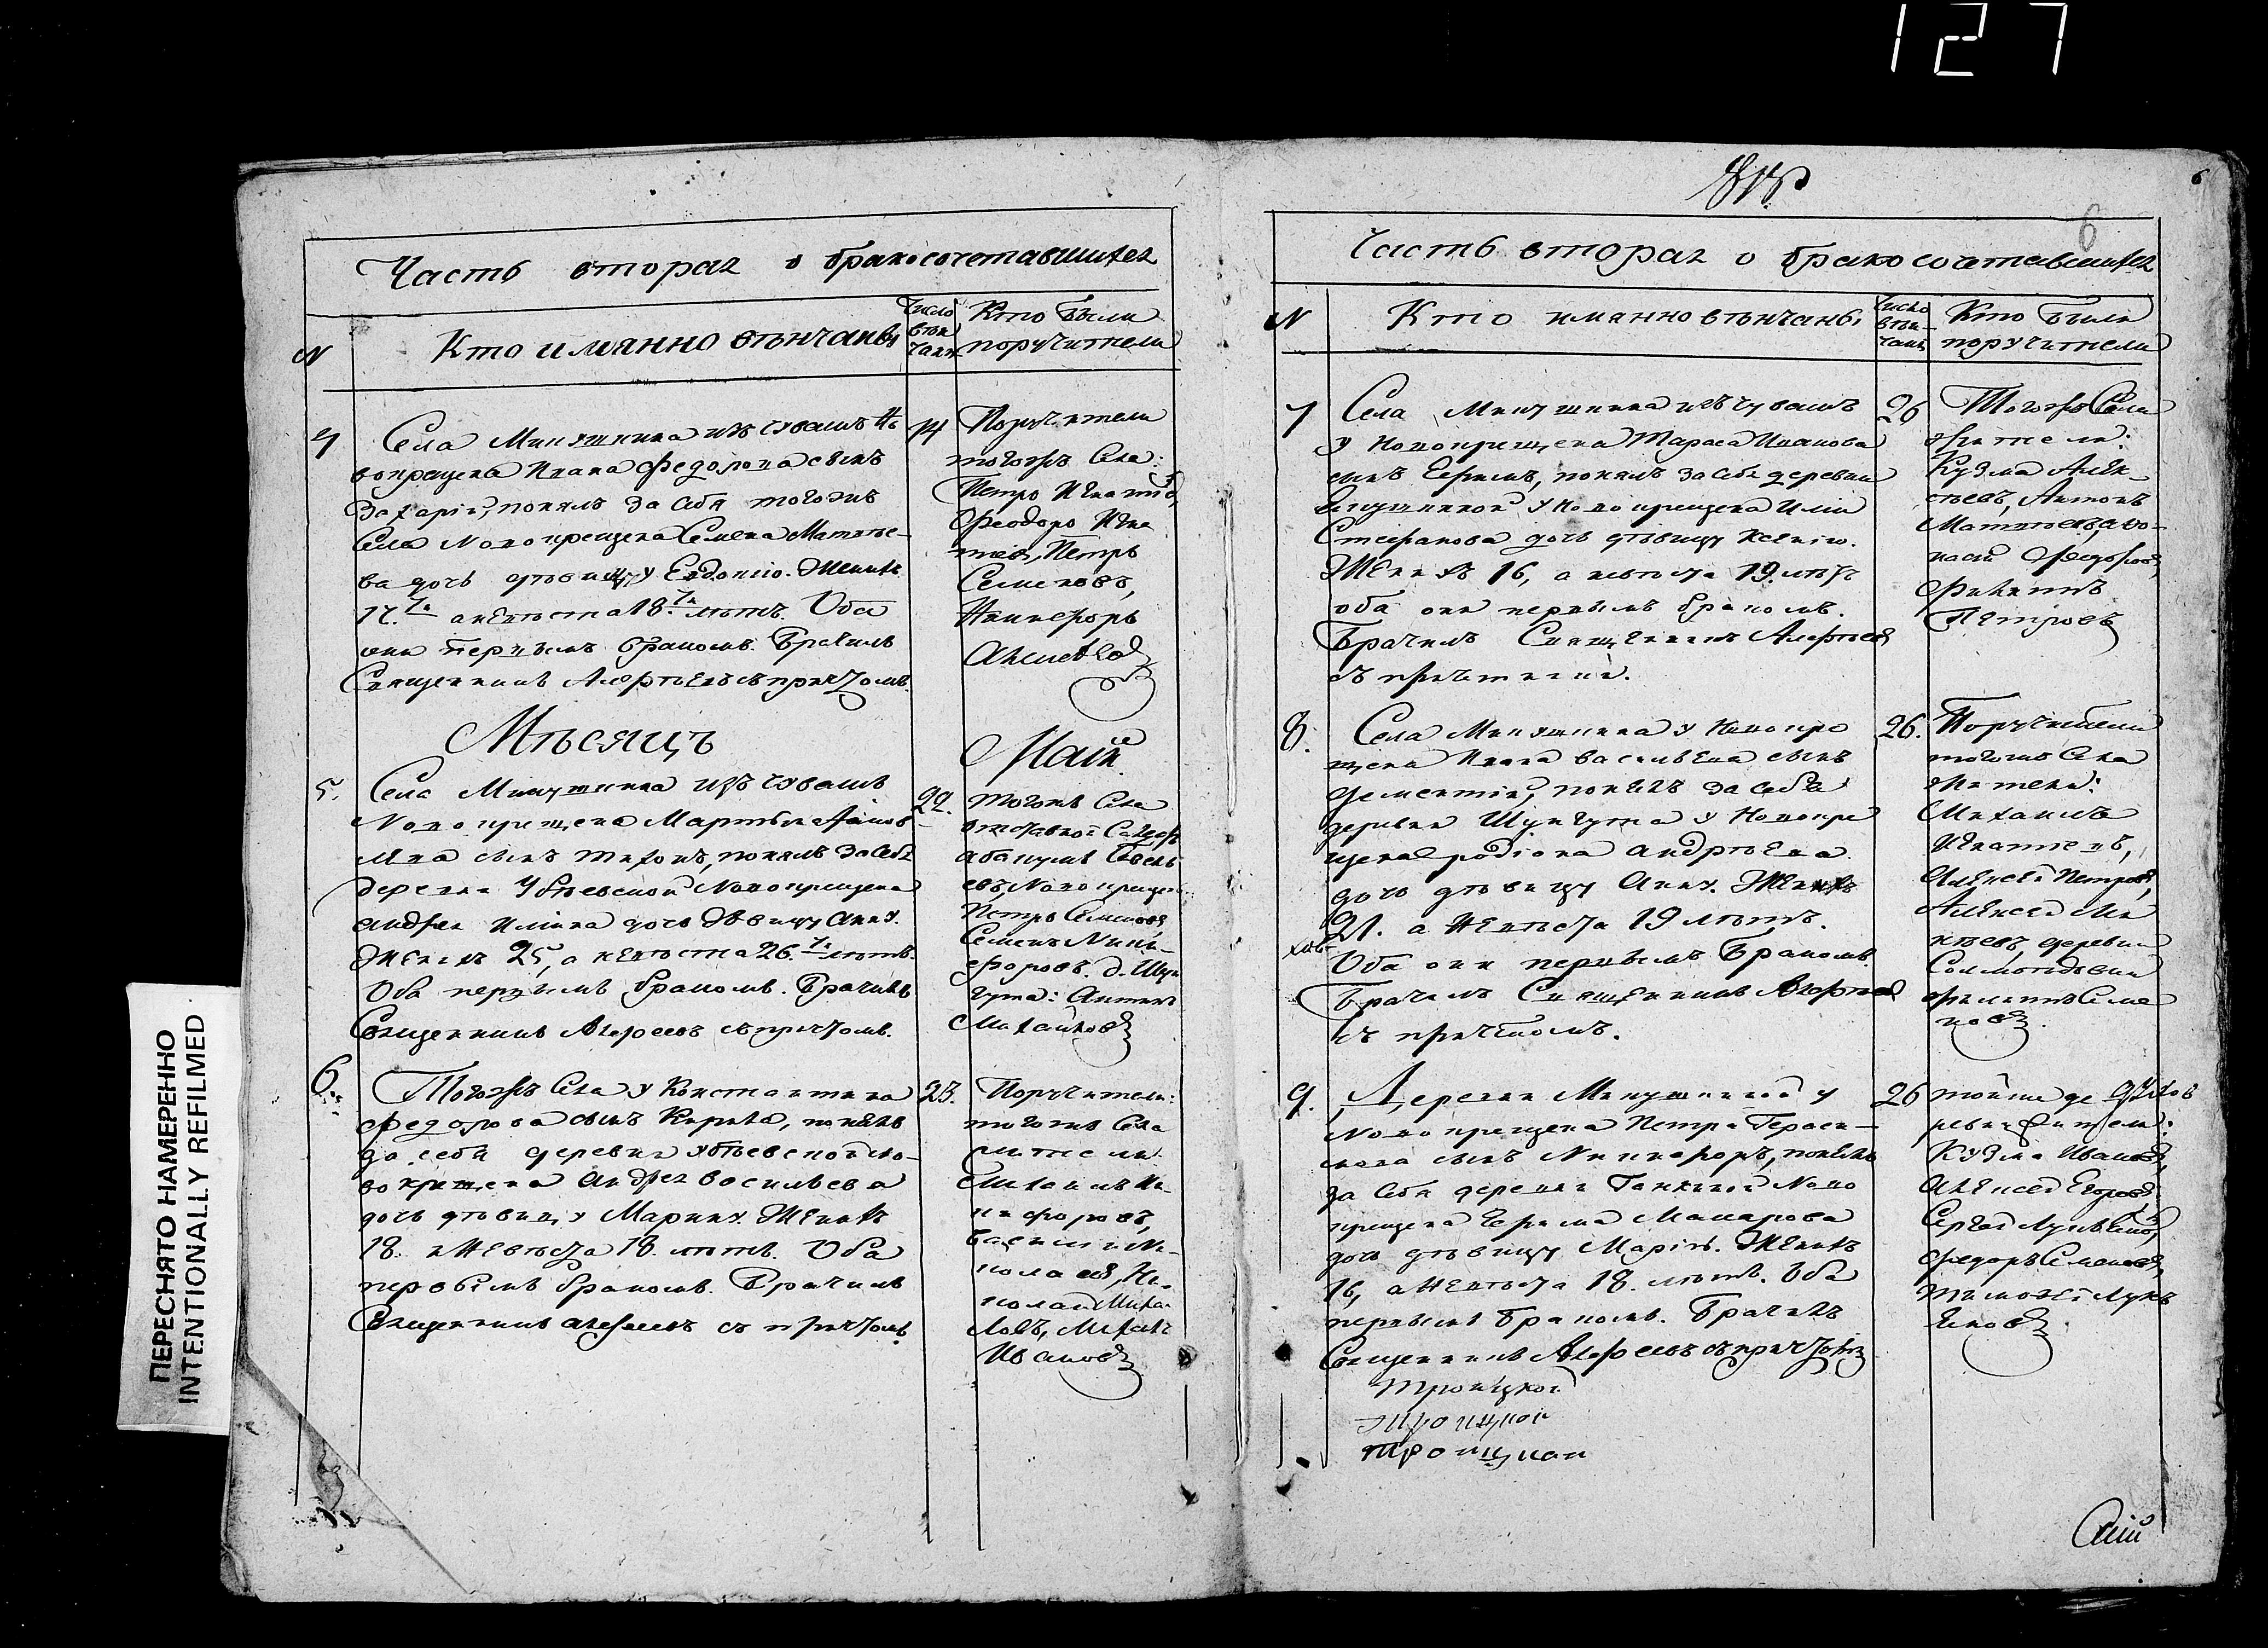 127
6
6
Часть вторая о бракосочетавшихся
N
Кто имянно венчаны
Число
вѣн
чанія
Кто были
поручители
4
Села Микушкина изъ чувашъ Но
вокрещена Ивана Федорова сынъ
Захарій, понялъ за себя тогожъ
Села Новокрещена Семена Матвѣе-
ва дочь дѣвицу Евдокію. Женихъ
17.ти а невѣста 18.ти лѣтъ. Оба
они первымъ бракомъ. Брачилъ
Священникъ Алефѣевъ съ причтомъ.
14
Поручители
тогожъ Села:
Петръ Игнатіевъ,
Феодоръ Игна
тіевъ, Петръ
Семеновъ,
Никифоръ
Мѣсяцъ
Маій
5.
Села Микушкина изъ чувашъ
Новокрещена Мартына
сынъ Тихонъ, понялъ за себя
деревни Убѣевской Новокрещена
Андрея Ильина дочь дѣвицу Анну.
Женихъ 25, а невѣста 26.ти лѣтъ.
Оба первымъ бракомъ. Брачилъ
Священникъ Алефѣевъ съ причтомъ.
22.
тогожъ Села
отставной
евъ, Новокрещены
Петръ Семеновъ,
Семенъ Ники-
форовъ. д. Шун
гута: Антипъ
Михайловъ
6.
Тогожъ Села у Константина
Федорова сынъ Кирила, понялъ
за себя деревни Убѣевской но-
вокрещена Андрея Васильева
дочь дѣвицу Марину. Женихъ
18. а невѣста 18 лѣтъ. Оба
первымъ бракомъ. Брачилъ
Священникъ Алефѣевъ съ причтомъ.
23.
Поручители:
тогожъ Села
жители
Михаилъ Ни-
кифоровъ,
Василій Ни-
колаевъ, Ни-
колай Михай
ловъ, Михаилъ
Ивановъ
Часть вторая о бракосочетавшихся
N
Кто имянно вѣнчаны
Число
вѣн-
чанія
Кто были
поручители
7
Села Микушкина изъ чувашъ
у Новокрещена Тараса Иванова
сынъ Ефимъ, понялъ за себя деревни
Микушкиной у Новокрещена Иліи
Стефанова дочь дѣвицу Ксенію.
Женихъ 16, а невѣста 19. лѣтъ
оба они первымъ бракомъ.
Брачилъ Священникъ Алефѣевъ
съ причтомъ.
26
Тогожъ Села
жители:
Кузма Алек-
сѣевъ, Антонъ
Матвѣевъ, Афо-
насій Федоровъ,
Филипъ
Петровъ
8.
Села Микушкина у Новокре
щена Ивана Васильева сынъ
Дементій, понялъ за себя
деревни Шунгута у Новокре
щена Родіона Андрѣева
дочь дѣвицу Анну. Женихъ
21. а невѣста 19 лѣтъ.
Оба они первымъ бракомъ.
Брачилъ Священникъ Алефѣевъ
съ причтомъ.
26.
Поручители
тогожъ Села
жители:
Михаилъ
Игнатьевъ,
Алексѣй Петровъ,
Алексѣй Ми
хѣевъ, деревни
Филипъ Семе
новъ.
9.
Деревни Микушкиной у
Новокрещена Петра Гераси-
мова сынъ Никифоръ, понялъ
за себя деревни Ганькиной Ново
крещена Ефима Макарова
дочь дѣвицу Марію. Женихъ
16, а невѣста 18. лѣтъ. Оба
первымъ бракомъ. Брачилъ
Священникъ Алефѣевъ съ причтомъ
26
тойже де
ревни жители:
Кузма Ивановъ,
Алексѣй Егоровъ,
Сергѣй Лукьяновъ,
Федоръ Семеновъ,
Тимофѣй Лукь
яновъ.
троицкой
троицкой
троицкой
ПЕРЕСНЯТО НАМЕРЕННО
INTENTIONALLY REFILMED